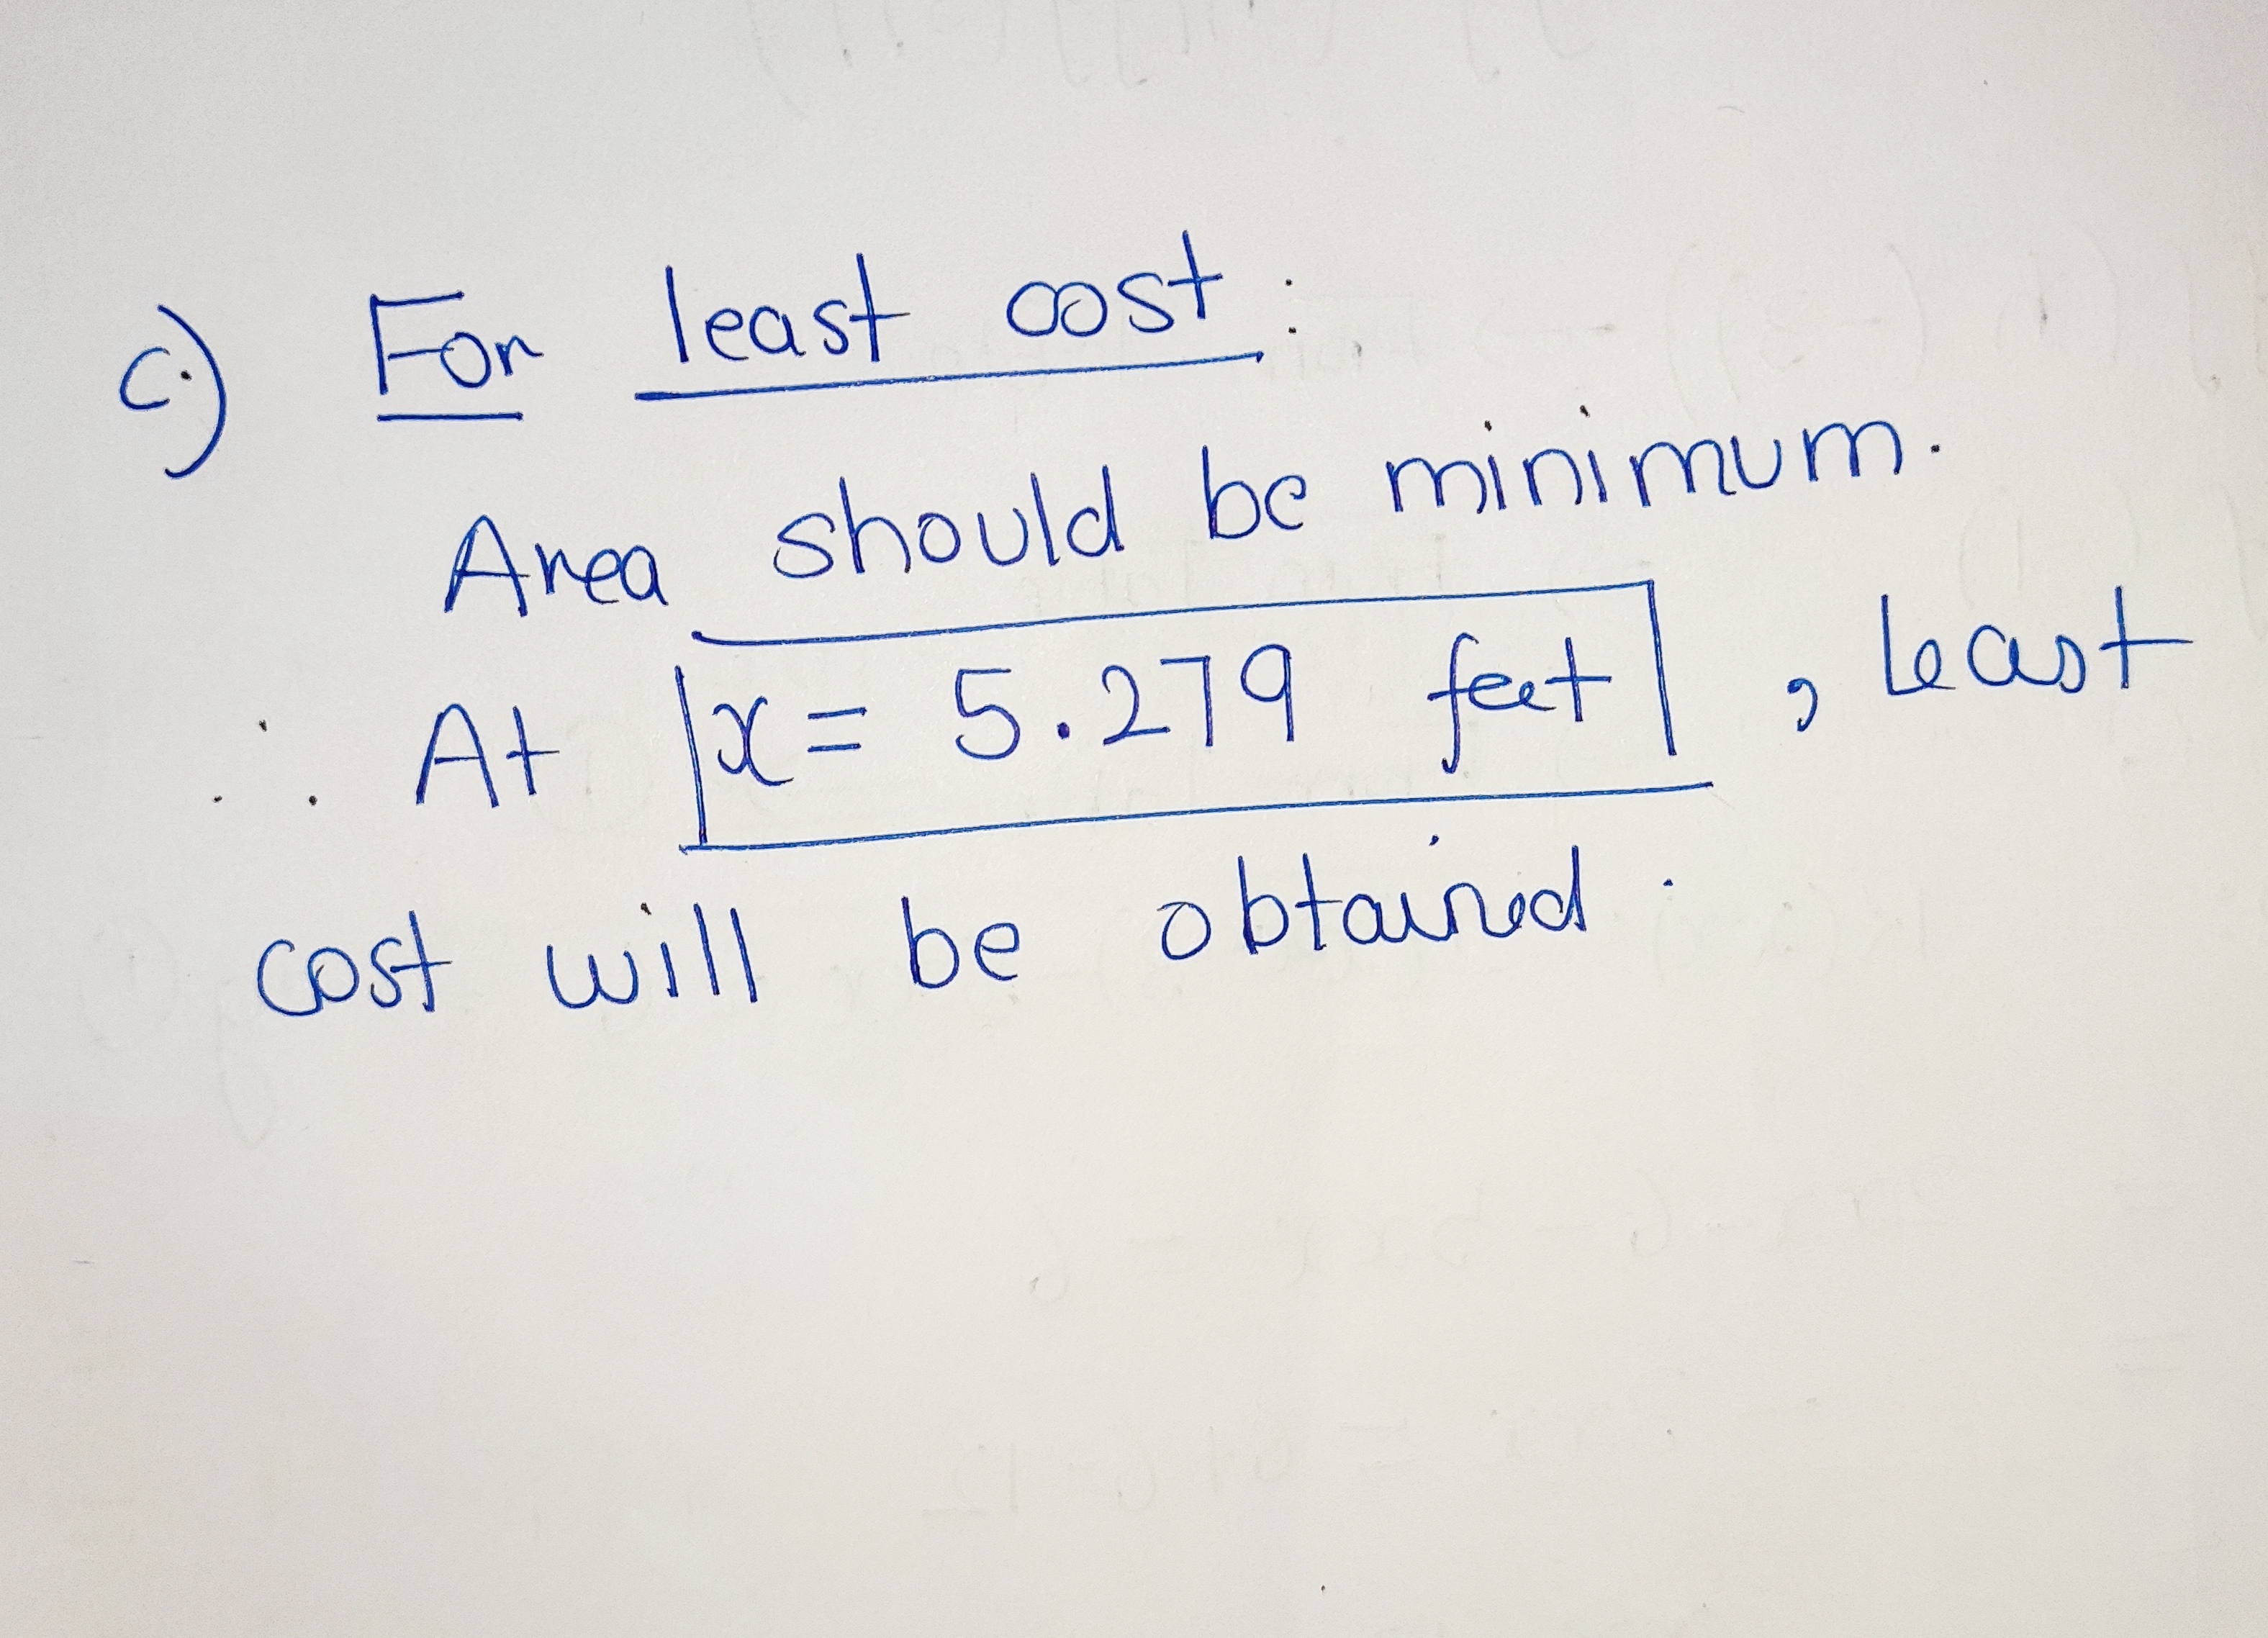 c.) For least cost :
Area should be minimum.
∴ At x = 5.279 feet , least
cost will be obtained.